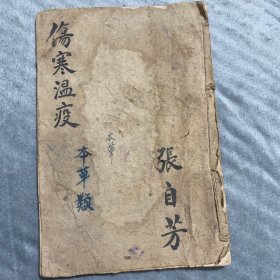 傷寒温疫
本草類
本草
張自芳